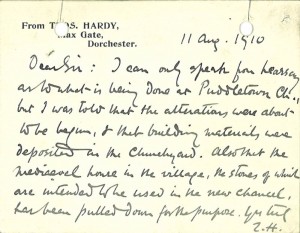 From THOS. HARDY,
Max Gate,
Dorchester.
11 Aug. 1910
Dear Sir: I can only speak from hearsay
as to what is being done at Puddletown Ch.,
but I was told that the alterations were about
to be begun, & that building materials were
deposited in the churchyard. Also that the
mediaeval house in the village, the stones of which
are intended to be used in the new chancel,
has been pulled down for the purpose. Yrs truly
T.H.